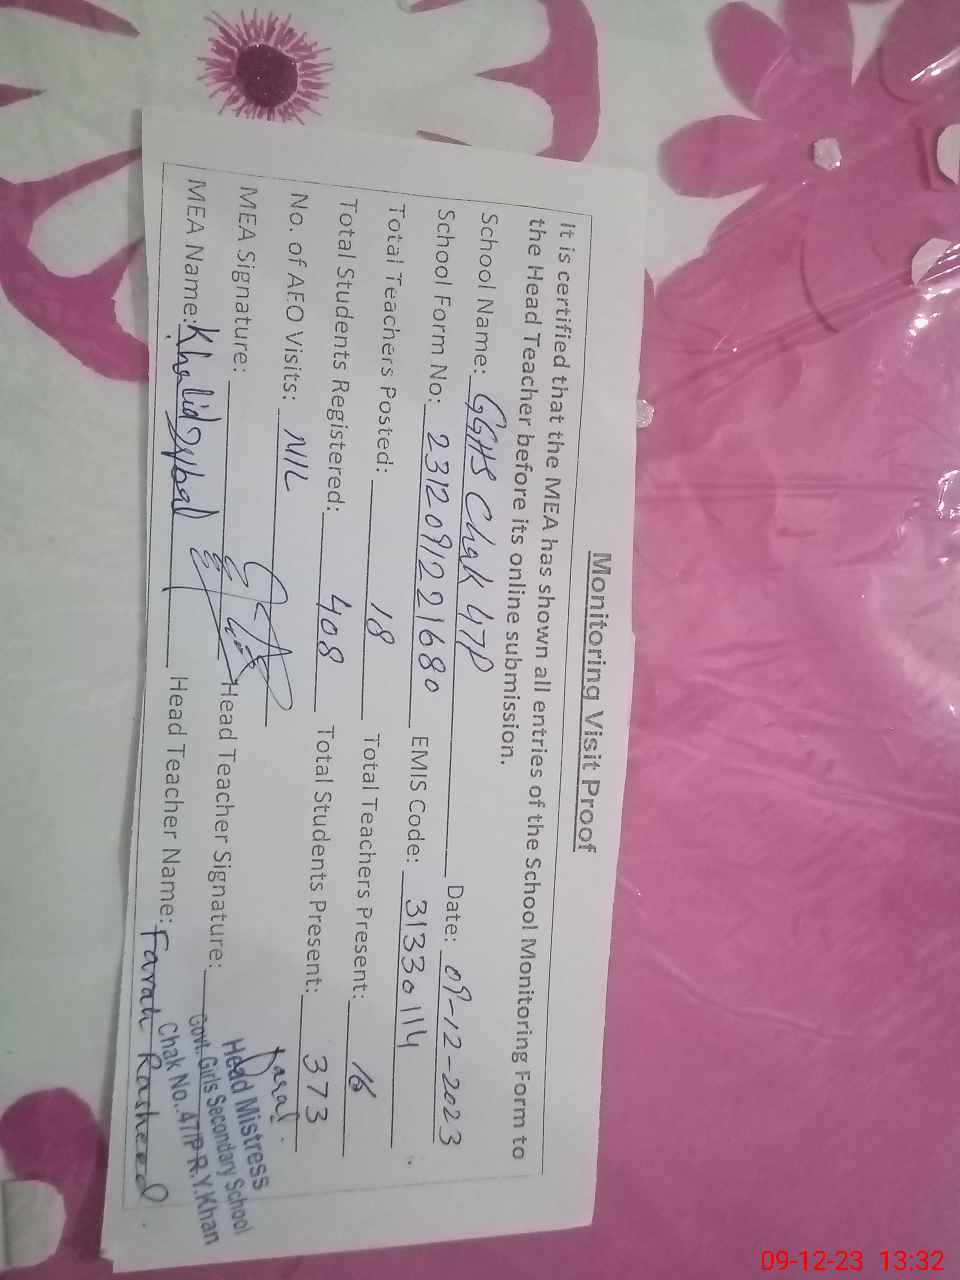 Monitoring Visit Proof
It is certified that the MEA has shown all entries of the School Monitoring Form to
the Head Teacher before its online submission.
School Name: GGHS Chak 47P Date: 09-12-2023
School Form No: 2312091221680 EMIS Code: 31330114
Total Teachers Posted: 18 Total Teachers Present: 16
Total Students Registered: 408 Total Students Present: 373
No. of AEO Visits: NIL
MEA Signature: Head Teacher Signature:
Head Mistress
Govt. Girls Secondary School
Chak No. 47/P R.Y.Khan
MEA Name: Khalid Iqbal Head Teacher Name: Farah Rasheed
09-12-23 13:32